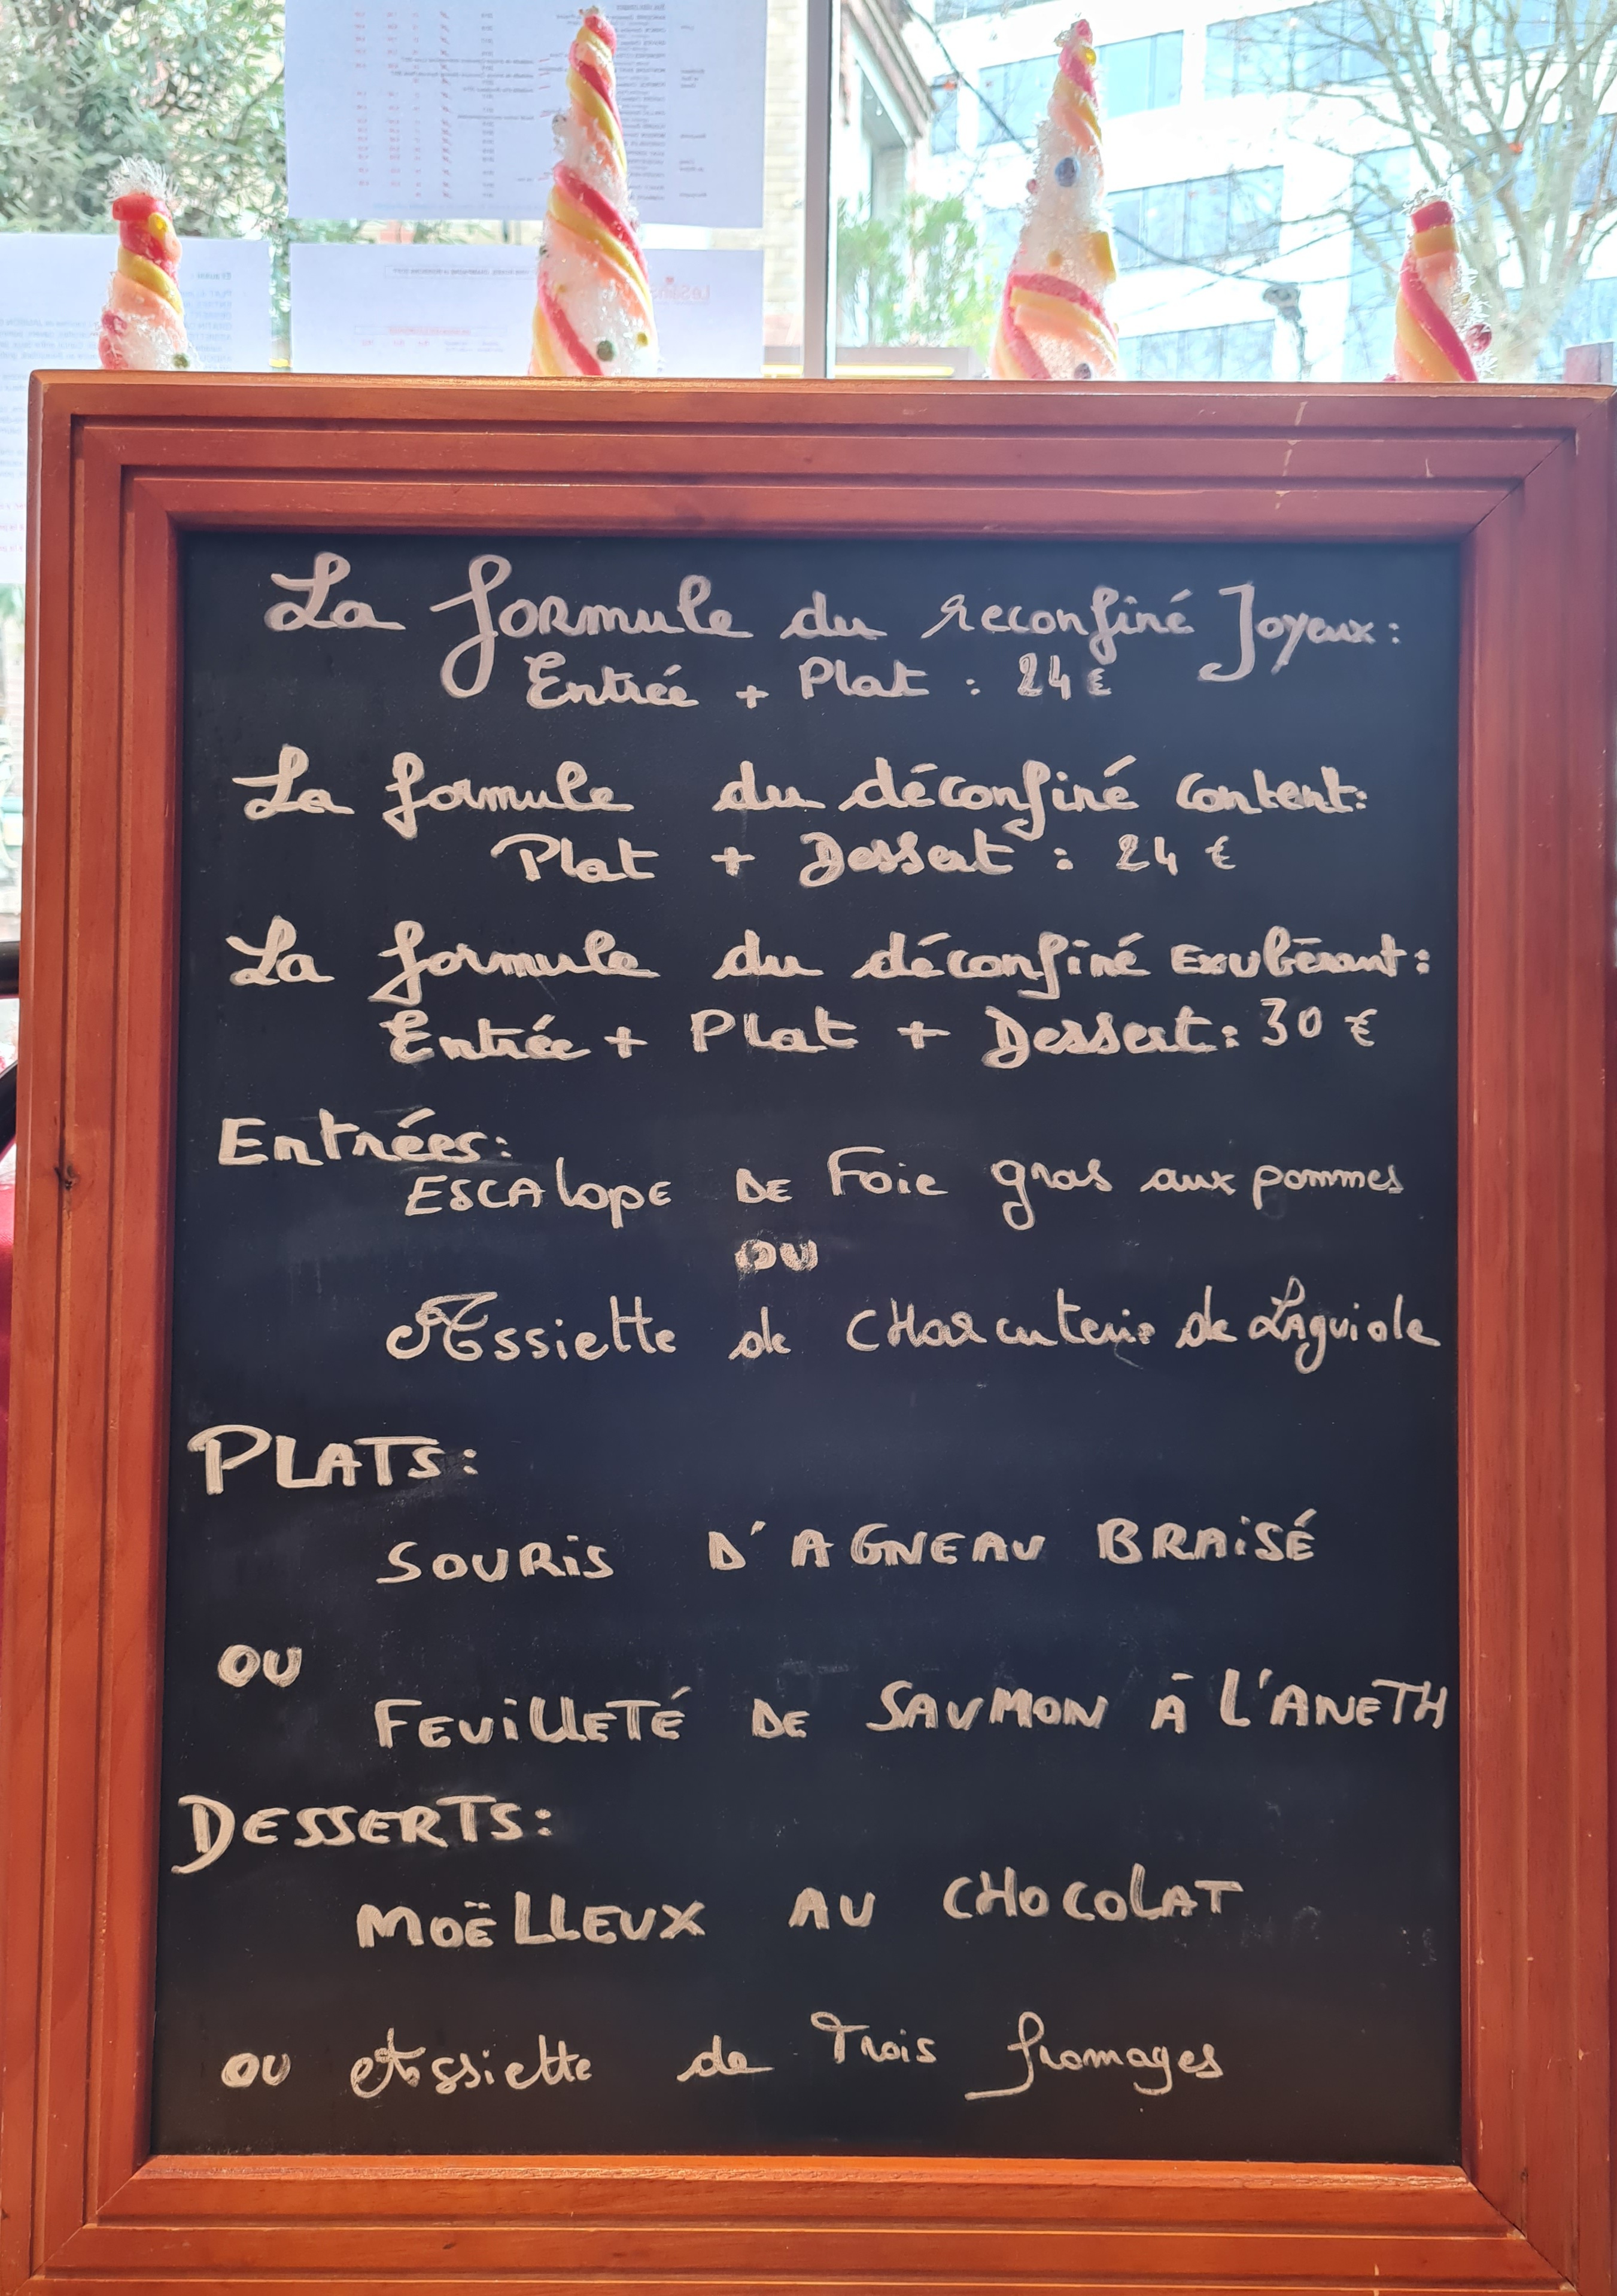 La formule du reconfiné Joyeux:
Entrée + Plat : 24 €
La formule du déconfiné content:
Plat + Dessert : 24 €
La formule du déconfiné Exubérant:
Entrée + Plat + Dessert: 30 €
Entrées:
ESCAlopE DE Foie gras aux pommes
OU
Assiette de CHarcuterie de Laguiole
PLATS:
SOURiS D'AGNEAU BRAiSÉ
OU
FEUillETÉ DE SAUMON À L'ANETH
DESSERTS:
MOËLLEUX AU CHOCOLAT
OU Assiette de Trois fromages